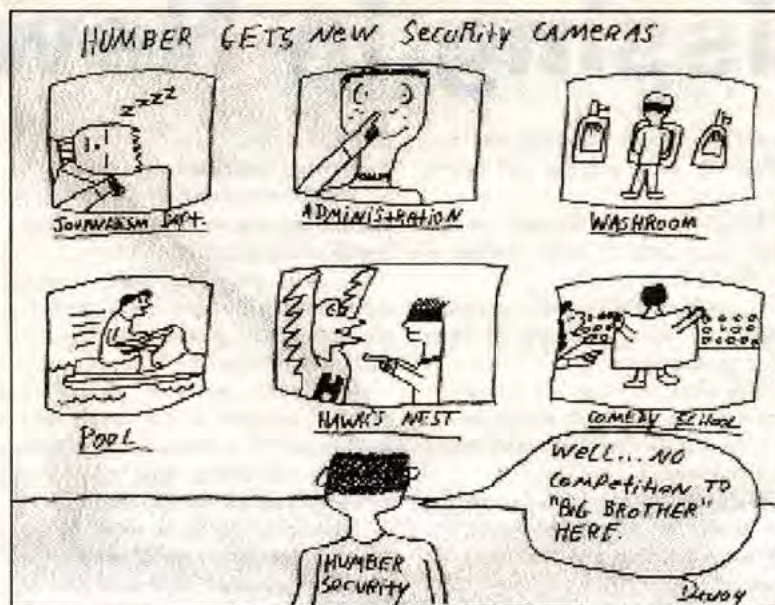 HUMBER GETS NEW SecuRity CAMERAS
zzzzz
JOURNALISM Dept.
ADMINIStRAtION
WASHROOM
POOL
HAWK'S NEST
COMEDY SCHOOL
H
WELL...NO
COMPEtItION TO
"BIG BROTHER"
HERE.
HUMBER
SECURITY